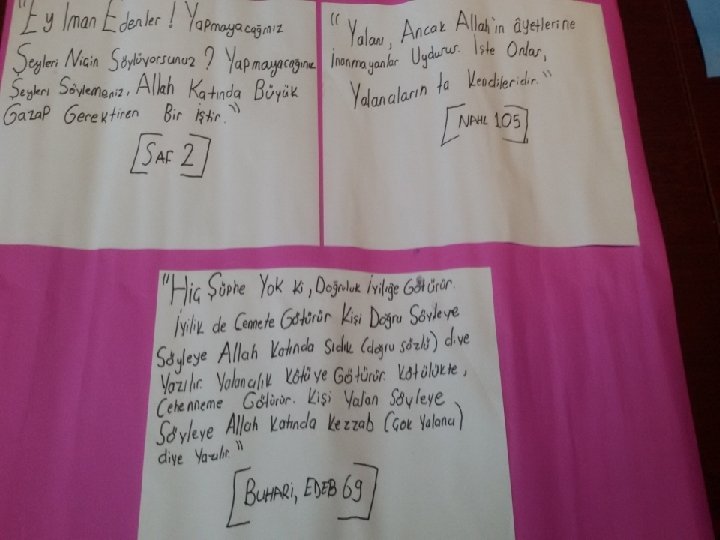 "Ey Iman Edenler! Yapmayacağınız
Şeyleri Niçin Söylüyorsunuz? Yapmayacağınız
Şeyleri Söylemeniz, Allah Katında Büyük
Gazap Gerektiren Bir İştir."
[SAF 2]
"Yalanı, Ancak Allah'ın âyetlerine
inanmayanlar Uydurur. İşte Onlar,
Yalancıların ta Kendileridir."
[NAHL 105]
"Hiç Şüphe Yok ki, Doğruluk iyiliğe Götürür.
İyilik de Cennete Götürür Kişi Doğru Söyleye
Söyleye Allah Katında Sıdık (doğru sözlü) diye
Yazılır. Yalancılık Kötüye Götürür. Kötülükte,
Cehenneme Götürür. Kişi Yalan Söyleye
Söyleye Allah Katında Kezzab (Çok Yalancı)
diye Yazılır."
[BUHARİ, EDEB 69]